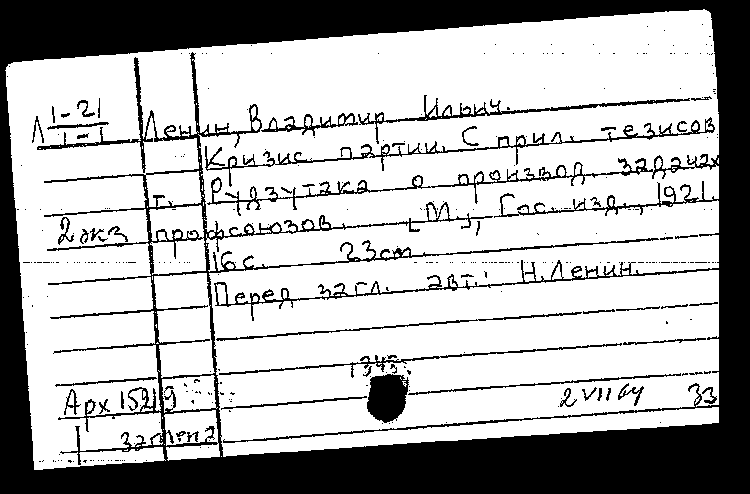 Л 1-21
1-1
Ленин, Владимир Ильич.
Кризис партии. С прил. тезисов
т. Рудзутака о производ. задачах
2 экз профсоюзов. [М.], Гос. изд., 1921.
16 с. 23 cm.
Перед загл. авт.: Н. Ленин.
Арх. 15219
2 VII 64 33